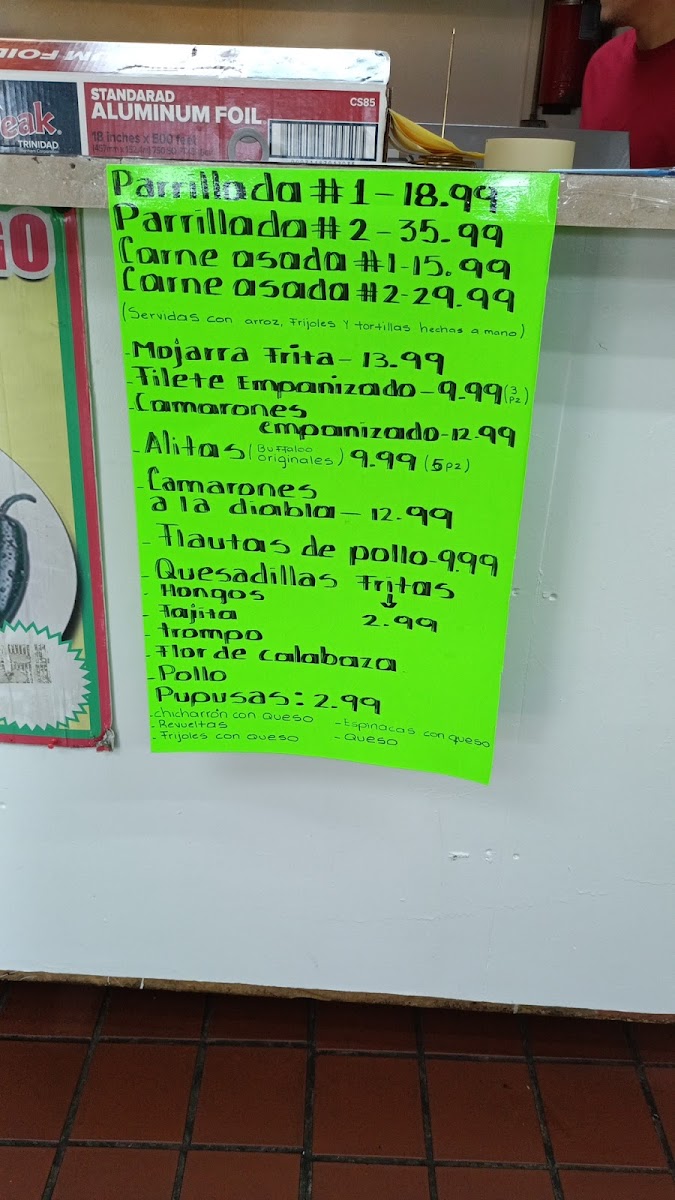 STANDARAD
ALUMINUM FOIL
18 inches x 500 feet
CS85
eak
TRINIDAD
GO
Parrillada #1-18.99
Parrillada #2-35.99
Carne asada #1-15.99
Carne asada #2-29.99
(Servidas con arroz, Frijoles Y tortillas hechas a mano)
-Mojarra Frita-13.99
-Filete Empanizado-9.99 (3 pz)
-Camarones
empanizado-12.99
-Alitas (Buffaloo originales) 9.99 (5pz)
-Camarones
a la diabla-12.99
-Flautas de pollo-9.99
-Quesadillas Fritas
-Hongos ↓
-Fajita 2.99
-trompo
-Flor de calabaza
-Pollo
Pupusas: 2.99
-chicharrón con queso -Espinacas con queso
-Revueltas
-Frijoles con queso -Queso